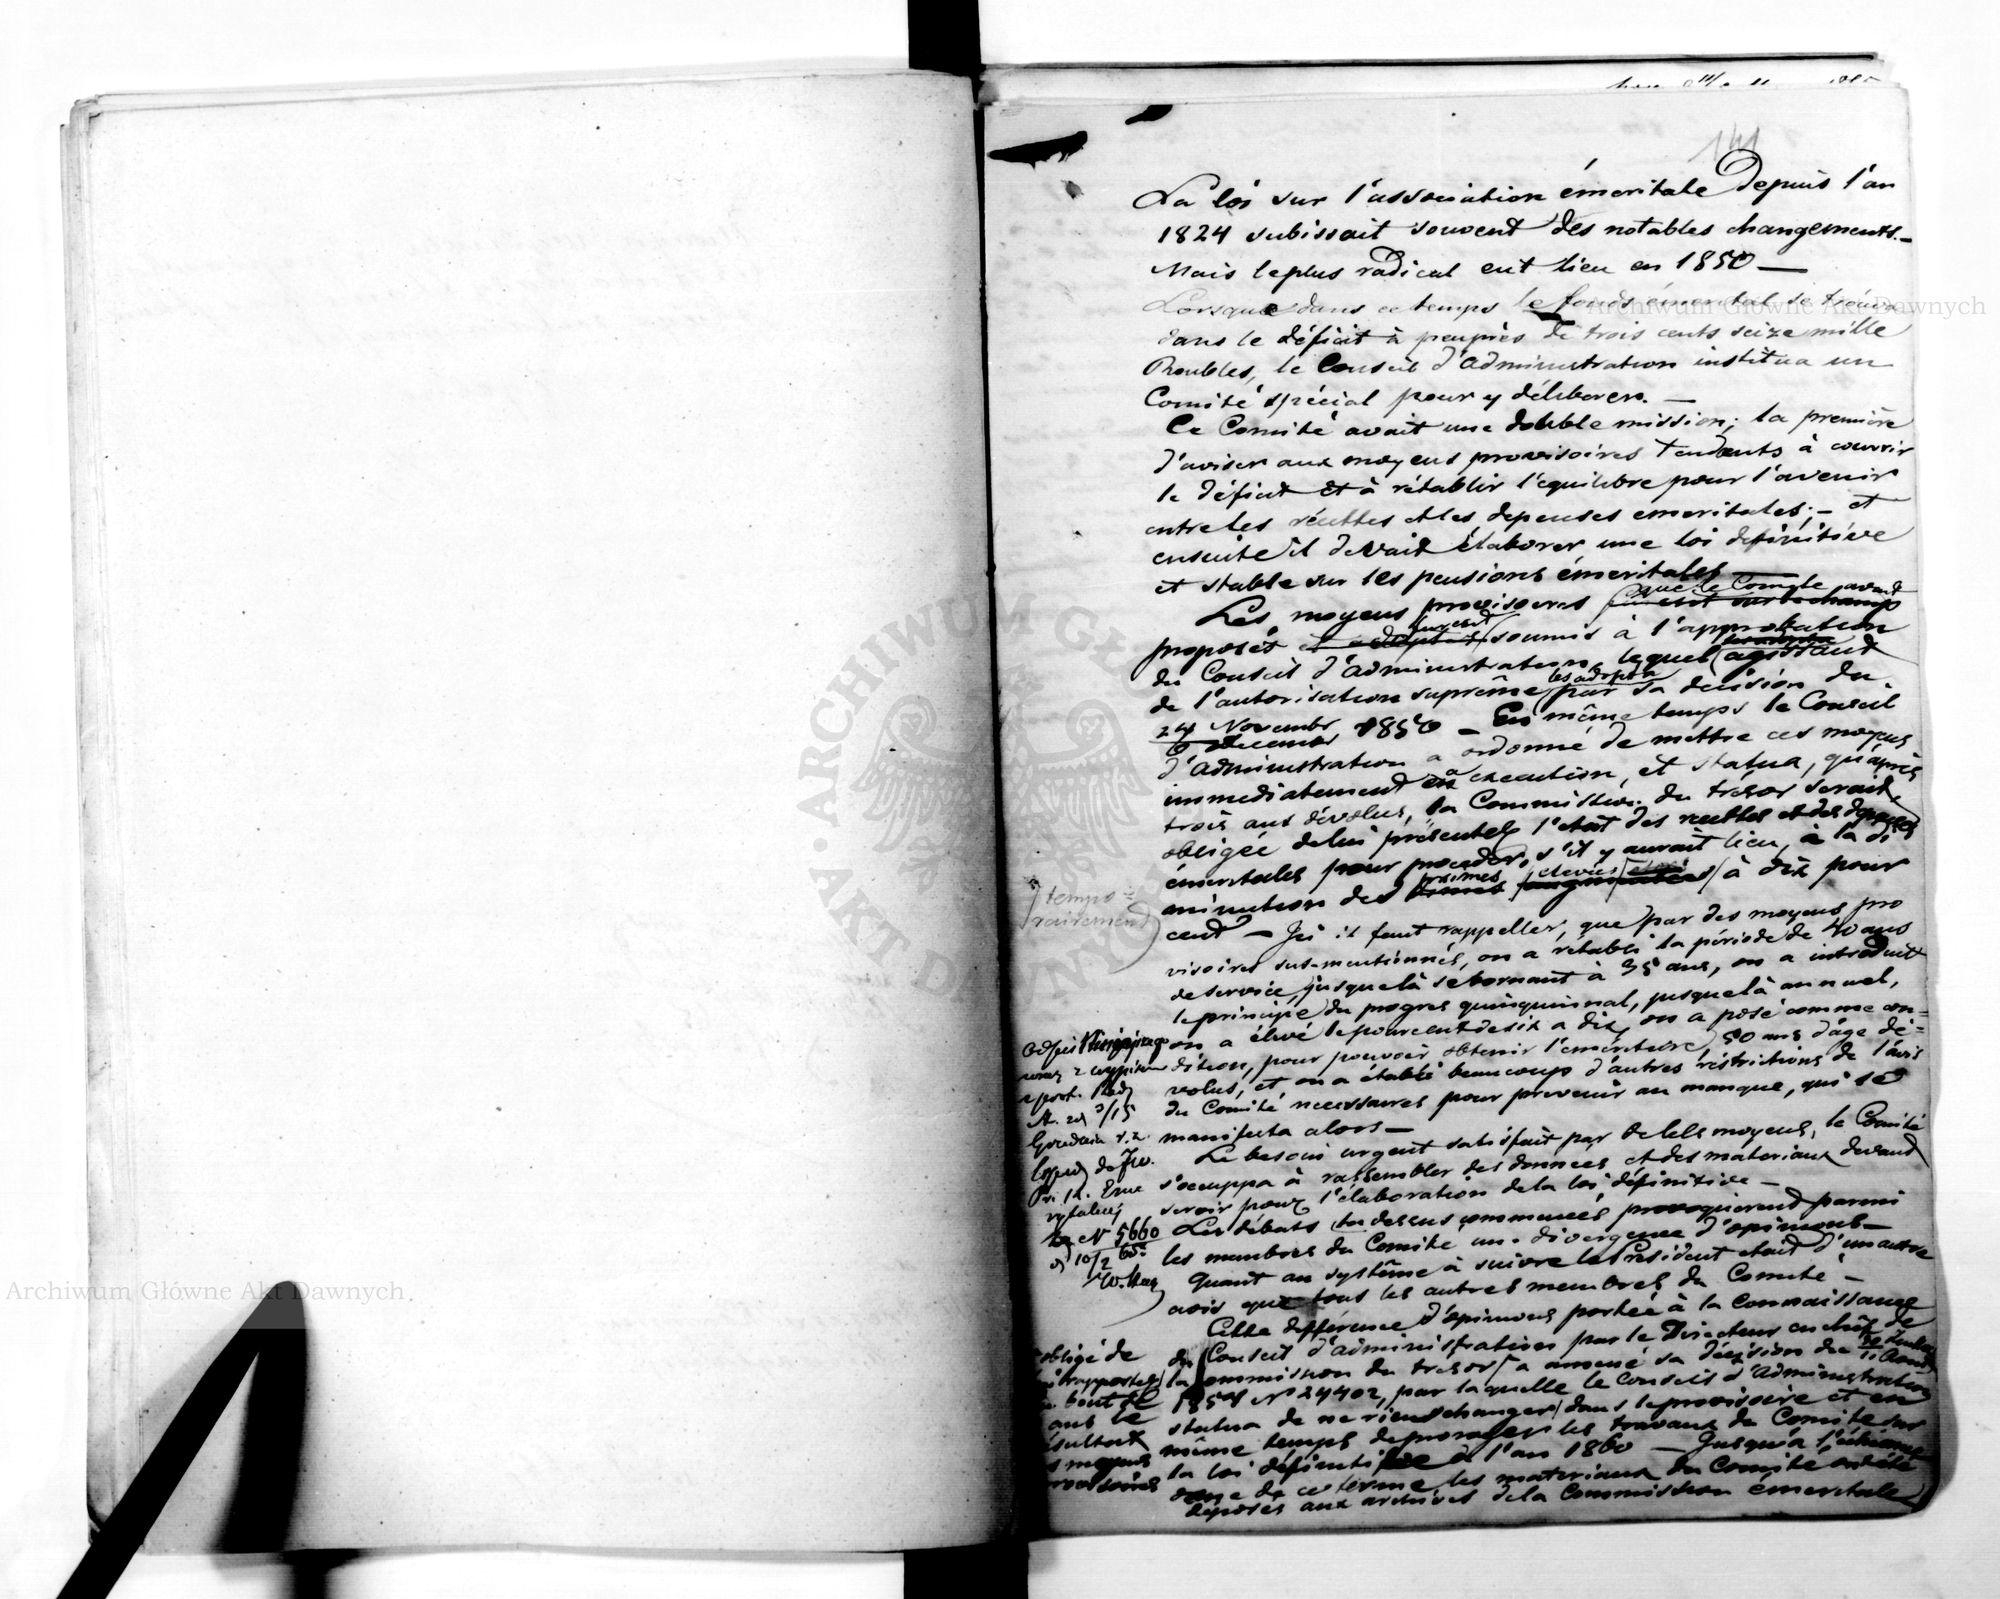 141
La loi sur l'association émeritale depuis l'an
1824 subissait souvent des notables changements.—
Mais le plus radical eut lieu en 1850 —
Lorsque dans ce temps le fonds émerital se trouva
dans le déficit à peuprès de trois cents seize mille
Roubles, le Conseil d'Administration institua un
Comité spécial pour y déliberer. —
Ce Comité avait une double mission; la première
d'aviser aux moyens provisoires tendants à couvrir
le déficit et à rétablir l'equilibre pour l'avenir
entre les récettes et les depenses emeritales; — et
ensuite il devait élaborer une loi définitive
et stable sur les pensions émeritales —
que le Comité avait
Les moyens provisoires sur le champ
proposés furent soumis à l'approbation
du Conseil d'Administration, lequel agissant
les adopta
de l'autorisation suprême par sa décision du
24 Novembre
6 Decembre 1850 — En même temps le Conseil
d'Administration a ordonné de mettre ces moyens
immediatement en execution, et statua, qu'après
trois ans dévolus, la Commission du trésor serait
obligée de lui présenter l'etat des recettes et des depenses
émeritales pour proceder, s'il y aurait lieu, à la di
minution des primes elevées à dix pour
tempo-
rairement
cent — Ici il faut rappeller, que par des moyens pro
visoires sus-mentionnés, on a rétabli la période de 40 ans
de service, jusque là se bornant à 35 ans, on a introduit
le principe du progres quinquinnal, jusque là annuel,
on a élevé le pourcent de six a dix, on a posé comme con-
dition, pour pouvoir obtenir l'emériture, 50 ans d'âge dé-
volus, et on a établi beaucoup d'autres réstrictions de l'avis
du Comité necessaires pour prevenir au manque, qui se
manifesta alors —
Le besoin urgent satisfait par de tels moyens, le Comité
s'occuppa à rassembler des données et des materiaux devant
servir pour l'élaboration de la loi définitive —
Les débats la dessus commencés, provoquerent parmi
les membres du Comité une divergence d'opinions —
Quant au système à suivre le Président etait d'un autre
avis que tous les autres membres du Comité —
Cette différence d'opinions portée à la connaissance
du Conseil d'Administration par le Directeur en chef de
la Commission du trésor a amené sa décision du
1854 N° 24402, par laquelle le Conseil d'Administration
statua de ne rien changer dans le provisoire et en
même temps de proroger les travaux du Comité sur
la loi définitive à l'an 1860 — Jusqu'a l'échéance
donc de ce terme les materiaux du Comité ont été
déposés aux archives de la Commission émeritale
N 5660
10/2 65
obligé de
rapporter
bout de
ans le
résultat
moyens
provisoires
Archiwum Główne Akt Dawnych
Archiwum Główne Akt Dawnych
ARCHIWUM GŁÓWNE AKT DAWNYCH